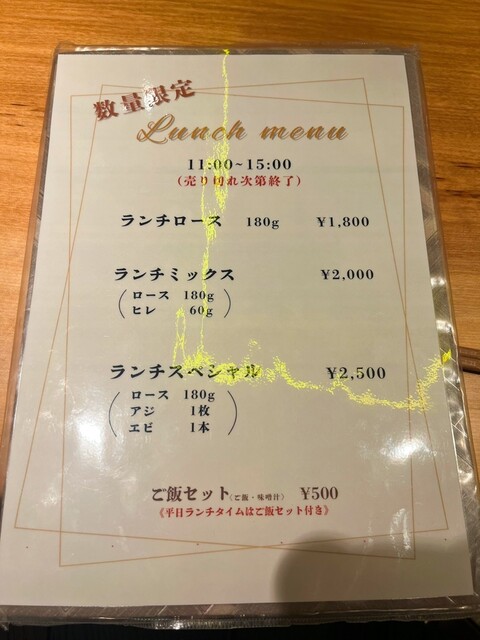 数量限定
Lunch menu
11:00~15:00
(売り切れ次第終了)
ランチロース 180g ¥1,800
ランチミックス ¥2,000
(ロース 180g
ヒレ 60g)
ランチスペシャル ¥2,500
(ロース 180g
アジ 1枚
エビ 1本)
ご飯セット(ご飯・味噌汁) ¥500
《平日ランチタイムはご飯セット付き》